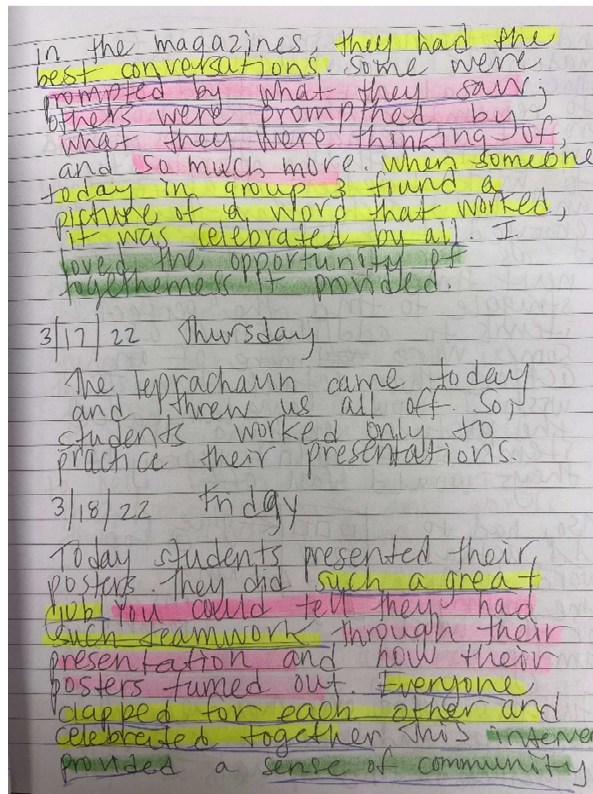 in the magazines, they had the
best conversations. Some were
prompted by what they saw;
others were prompthed by
what they were thinking of,
and so much more. When someone
today in group 3 fiund a
picture of a word that worked,
it was celebrated by all. I
loved the opportunity of
togetherness it provided.
3/17/22 Thursday
The leprachaun came today
and threw us all off. So,
students worked only to
practice their presentations.
3/18/22 Friday
Today students presented their
posters. They did such a great
job! You could tell they had
such teamwork through their
presentation and how their
posters turned out. Everyone
clapped for each other and
celebrated together. This interve
provided a sense of community